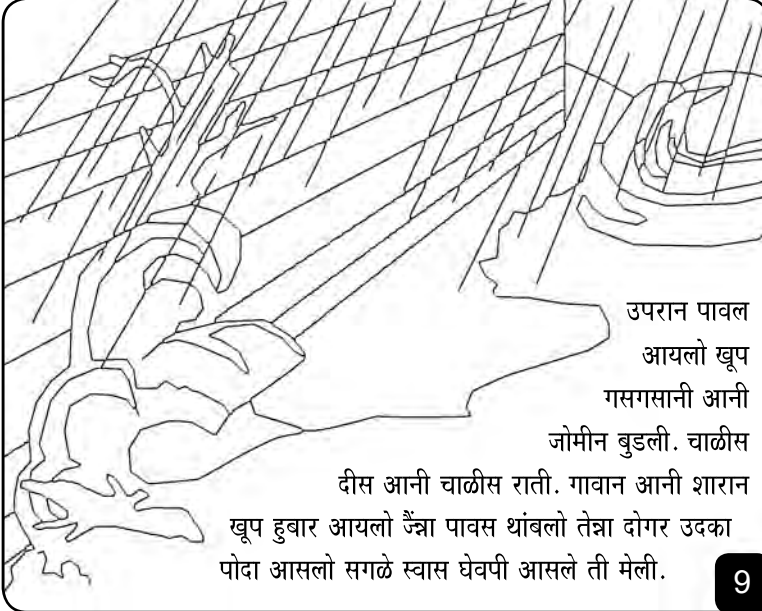 उपरान पावल
आयलो खूप
गसगसानी आनी
जोमीन बुडली. चाळीस
दीस आनी चाळीस राती. गावान आनी शारान
खूप हुबार आयलो जेंन्ना पावस थांबलो तेन्ना दोगर उदका
पोदा आसलो सगळे स्वास घेवपी आसले ती मेली.
9